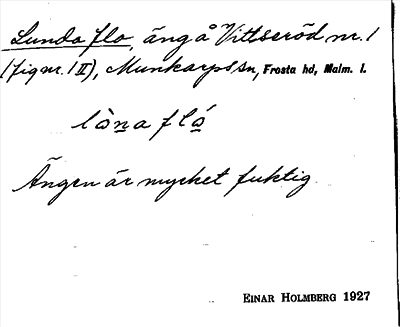 Lunda flo, äng å Vittseröd nr. 1
(fig nr. 1 II), Munkarps sn, Frosta hd, Malm. l.
lòna fló
Ängen är mycket fuktig.
EINAR HOLMBERG 1927